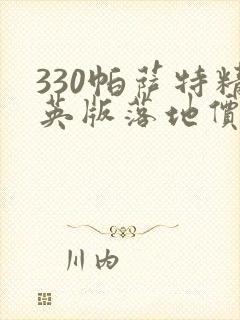 330帕萨特精
英版落地價
川内